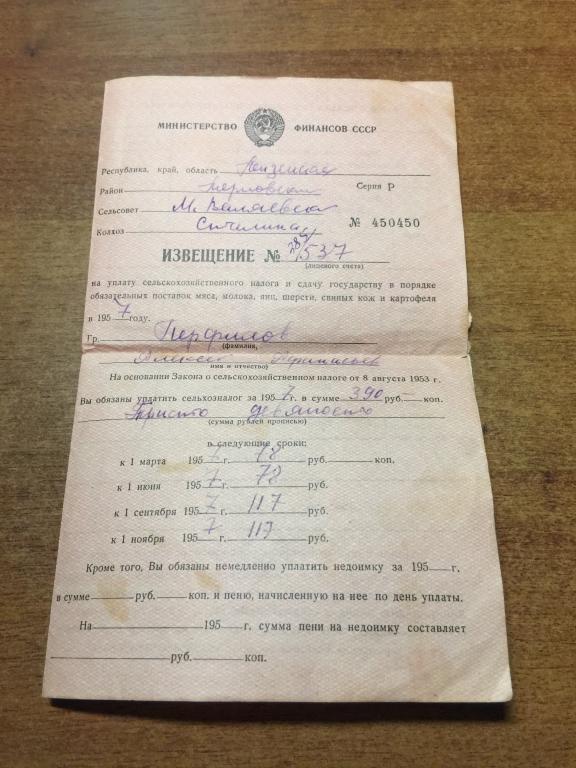 МИНИСТЕРСТВО ФИНАНСОВ СССР
Республика, край, область Пензенская
Район Серия Р
Сельсовет М. Валяевск
Колхоз Сталина № 450450
ИЗВЕЩЕНИЕ № 537
(лицевого счета)
на уплату сельскохозяйственного налога и сдачу государству в порядке
обязательных поставок мяса, молока, яиц, шерсти, свиных кож и картофеля
в 1957 году.
Гр. Перфилов
(фамилия,
Алексей
имя и отчество)
На основании Закона о сельскохозяйственном налоге от 8 августа 1953 г.
Вы обязаны уплатить сельхозналог за 1957 г. в сумме 390 руб.— коп.
Триста девяносто
(сумма рублей прописью)
в следующие сроки:
к 1 марта 1957 г. 78 руб. коп.
к 1 июня 1957 г. 78 руб.
к 1 сентября 1957 г. 117 руб.
к 1 ноября 1957 г. 117 руб.
Кроме того, Вы обязаны немедленно уплатить недоимку за 195 г.
в сумме руб. коп. и пеню, начисленную на нее по день уплаты.
На 195 г. сумма пени на недоимку составляет
руб. коп.